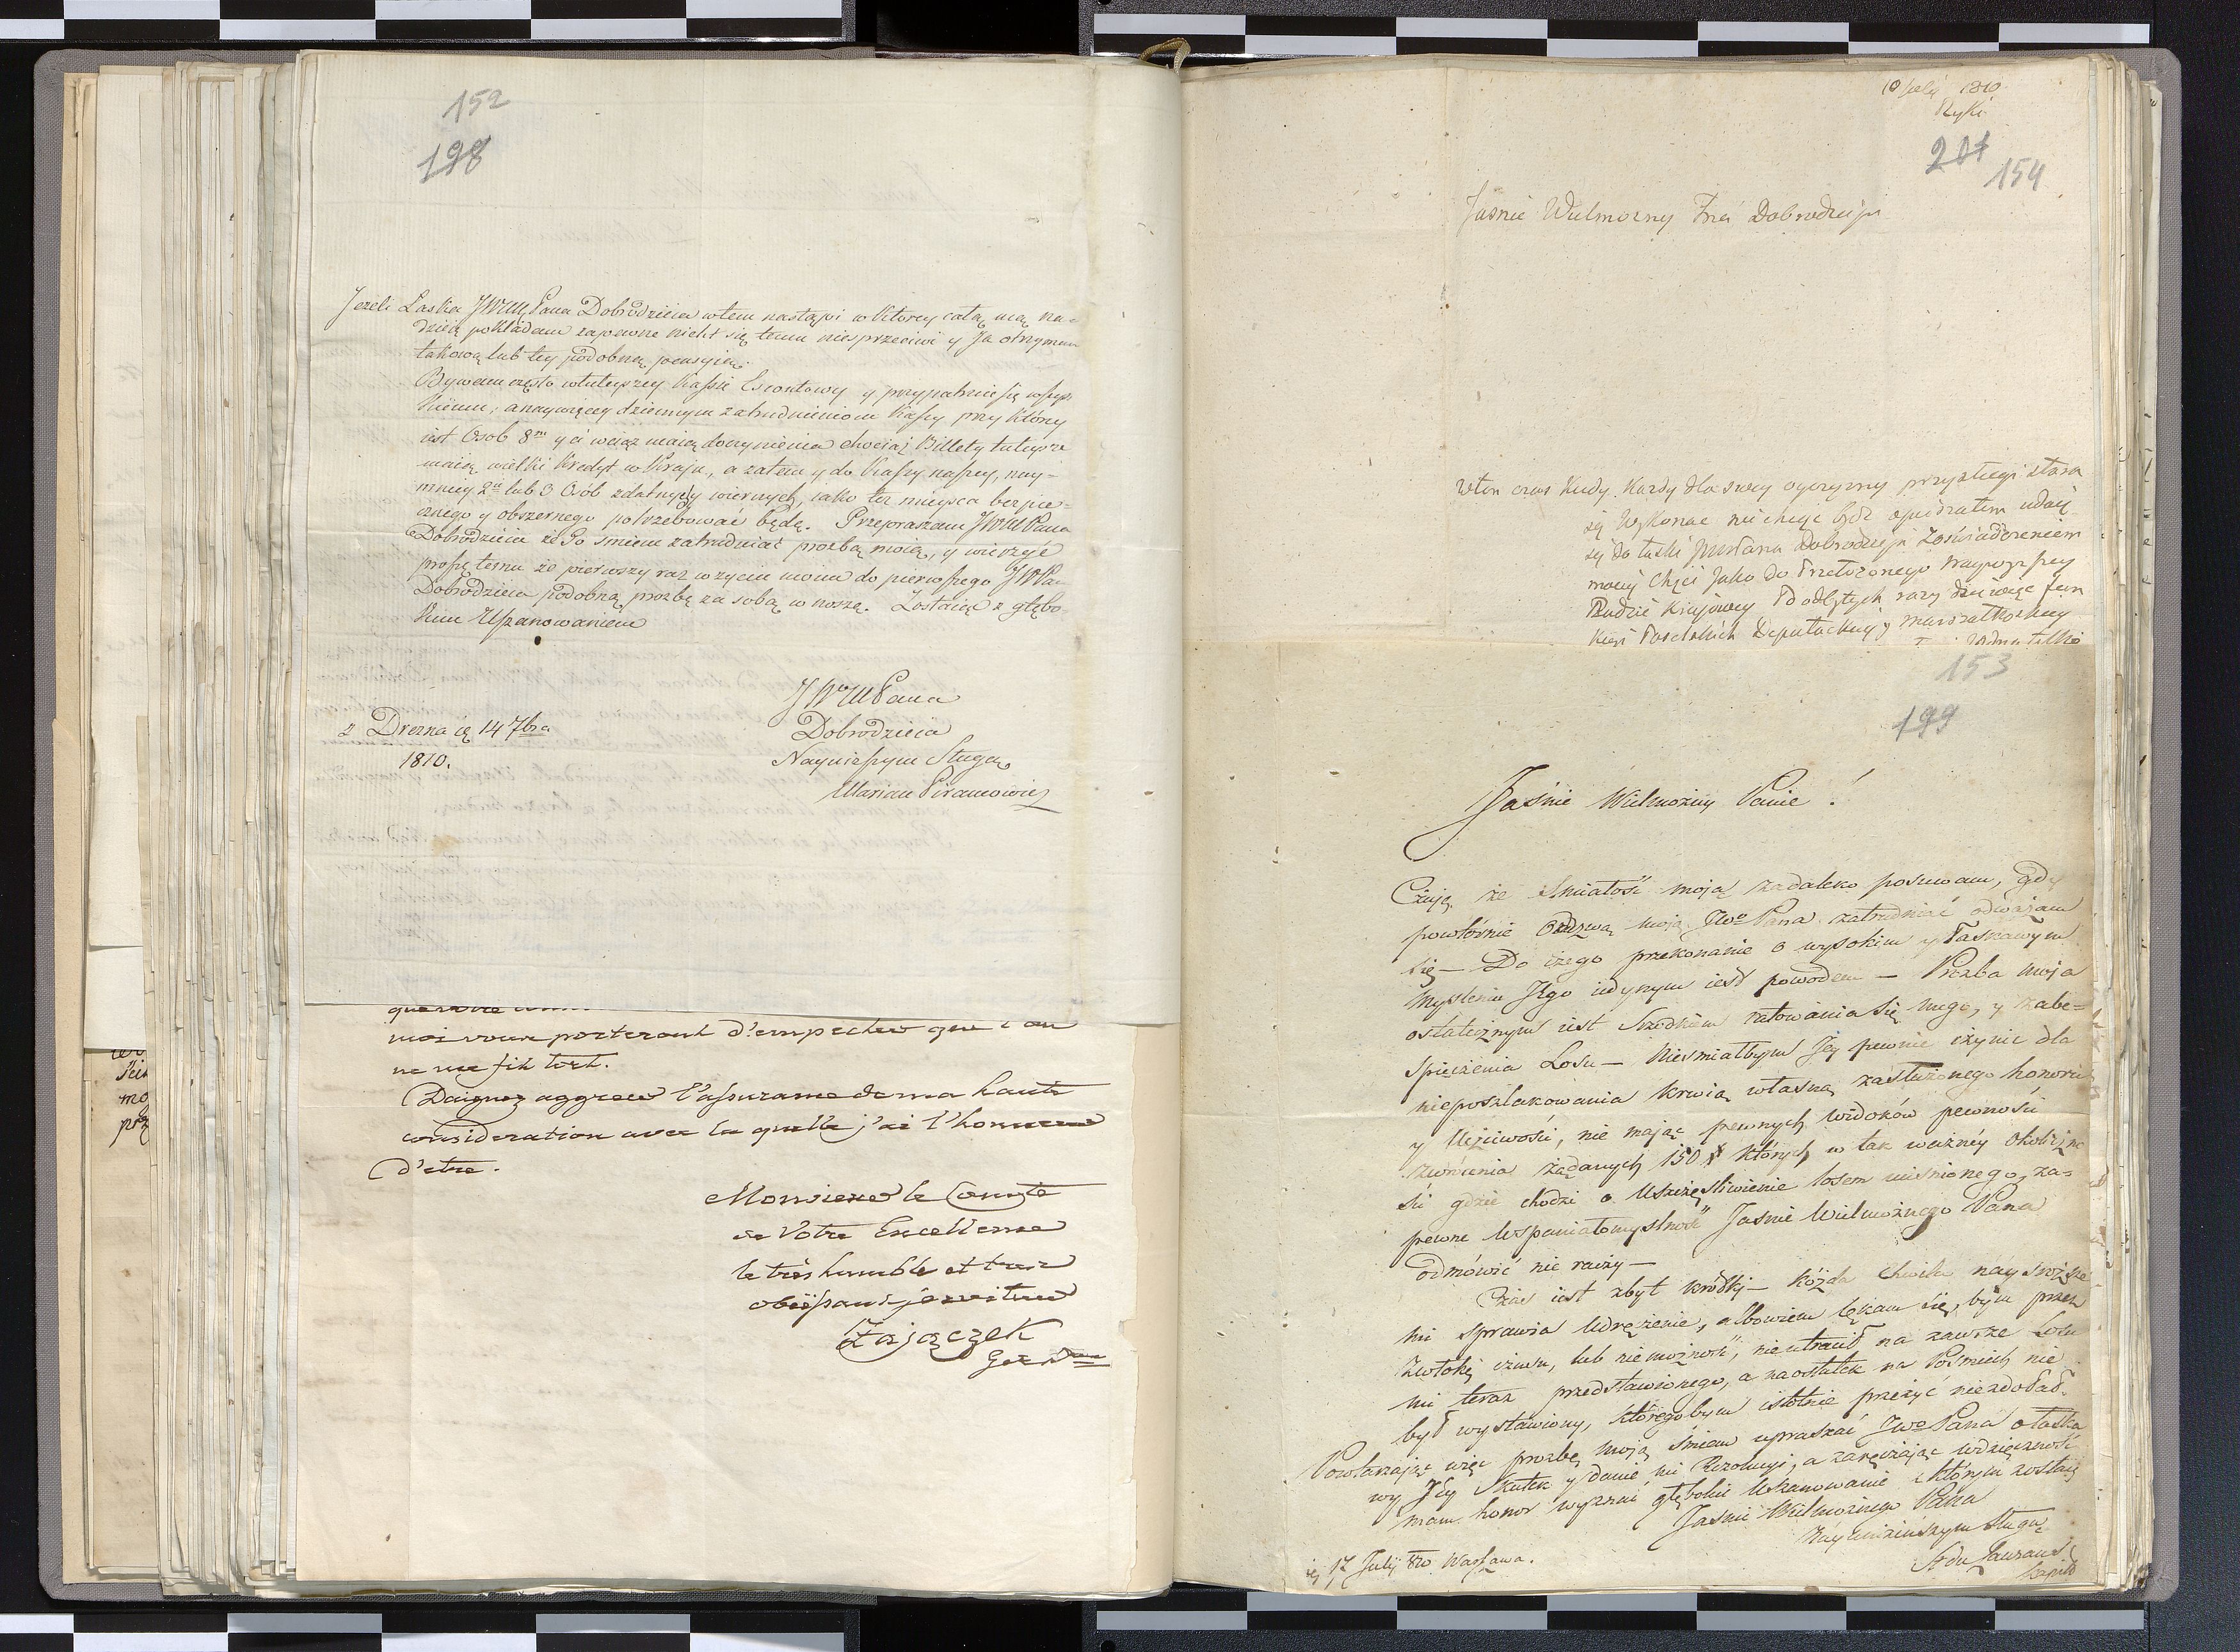 152
198
Jezeli Laska JWM Pana Dobrodzieia wtem nastąpi w Ktorey całą mą na=
dzieię pokładam zapewne nicht się temu niesprzeciwi y Ja otrzymam
takową lub tey podobną pensyią.
Bywam często wtuteyszey Kassie Escontowy y przypatruie się wszys
kiemu, a naywięcey dziennym zatrudnieniom Kassy przy Który
iest Osob 8m y ci wciąz maią doczynienia chociaż Billety tuteysze
maią wielki Kredyt w Kraju, a zatem y do Kassy naszey, nay=
mniey 2ch lub 3 Osób zdatnych y wiernych, iako tez mieysca bezpie=
cznego y obszernego potrzebować będą. Przepraszam JWM Pana
Dobrodzieia że Go śmiem zatrudniać prozbą moią, y wierzyć
proszę temu że pierwszy raz w zyciu moim do pierwszego JWPa
Dobrodzieia podobną prozbę za sobą wnoszę. Zostaiąc z głębo=
kim Uszanowaniem
JWM Pana
Dobrodzieia
Nayniższym Sługą
Marian Piramowicz
z Drezna ię 14 7bra
1810.
moi vous porteront d'empecher que l'on
ne me fit tort.
Daignez aggreer l'assurance de ma haute
consideration avec la quelle j'ai l'honneur
d'etre.
Monsieur le Comte
de Votre Excellence
le très humble et tres
obéissant serviteur
Zajączek
Gez
10 July 1810
Ryki
201
154
Jasnie Wielmozny Mci Dobrodzieju
Wten czas Kiedy Kazdy dla swey oyczyzny przysługi stara
się Wykonac niechcąc bydz opuszczałem udaię
się do łaski JmPana Dobrodzieja Zoświadczeniem
moiey Chęci Jako do Przełożonego Naywyzszey
Radzie Krajowey Podobłych razy dziewięc fun
Kcyi Poselskich Deputackiey y marszałkoskiey
153
199
Jaśnie Wielmożny Panie!
Czuję że śmiałość moją zadaleko posuwam, gdy
powtórnie Odezwą moją JWo Pana zatrudniać odważam
się — Do czego przekonanie o wysokim y Łaskawym
Mysleniu Jego iedynym iest powodem — Prozba moja
ostatecznym iest Srzodkiem ratowania się mego, y zabe=
spieczenia Losu — Niesmiałbym Jey pewnie czynic dla
nieposzlakowania krwią własną zasłużonego honoru
y Uczciwości, nie mając pewnych widoków pewności
zwrócenia żądanych 150 # których w tak ważney okoliczno
ści gdzie chodzi o Uszczęśliwienie losem uciśnionego, za=
pewne Wspaniałomyslność Jasnie Wielmożnego Pana
odmówić nie raczy —
Czas iest zbyt krótki — Kóżda chwila náysroższe
mi sprawia Udręczenie, albowiem lękam się, bym przez
Zwłokę czasu, lub niemożność, nieutracił na zawsze Losu
mi teraz przedstawionego, a naostatek na Pośmiech nie
był wystawiony, któregobym istotnie przeżyć niezdołał.
Powtarzając więc prozbę moją śmiem upraszać JWo Pana o łaska
wy Jey Skutek y danie mi Rezolucyi, a zaręczając wdzięczność
mam honor wyznać głębokie Uszanowanie z którym zostaię
Jasnie Wielmożnego Pana
Náyuniżeńszym Sługą
St du Laurans
kapit
ię 17 July 810 Warszawa.